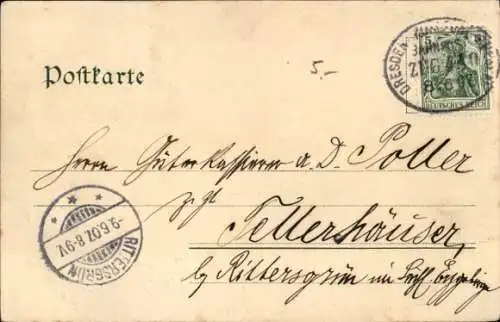 5.-
Postkarte
DRESDEN
BAHNPOST
ZUG
5
DEUTSCHES REICH
Herrn Güterkassierer a. D. Poller
z. Zt.
Tellerhäuser,
b/ Rittersgrün im Sächs. Erzgebirge
RITTERSGRÜN
-9.6.07. 8-9V.